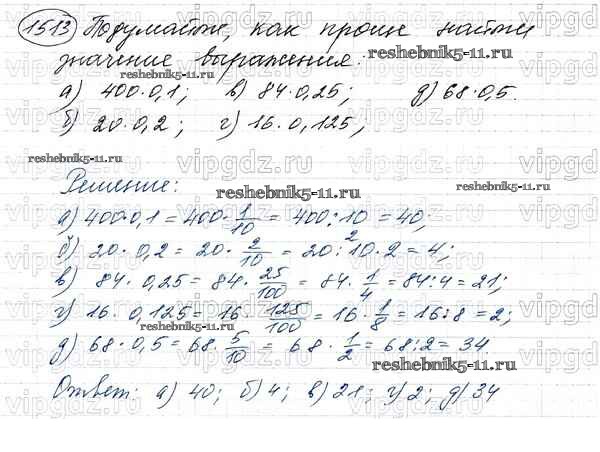 1513 Подумайте, как проще найти
значение выражения:
а) 400·0,1; в) 84·0,25; д) 68·0,5.
б) 20·0,2; г) 16·0,125;
Решение:
а) 400·0,1 = 400·1/10 = 400:10 = 40;
б) 20·0,2 = 20·2/10 = 20:10·2 = 4;
в) 84·0,25 = 84·25/100 = 84·1/4 = 84:4 = 21;
г) 16·0,125 = 16·125/100 = 16·1/8 = 16:8 = 2;
д) 68·0,5 = 68·5/10 = 68·1/2 = 68:2 = 34
Ответ: а) 40; б) 4; в) 21; г) 2; д) 34
reshebnik5-11.ru
reshebnik5-11.ru
reshebnik5-11.ru
reshebnik5-11.ru
reshebnik5-11.ru
reshebnik5-11.ru
reshebnik5-11.ru
vipgdz.ru